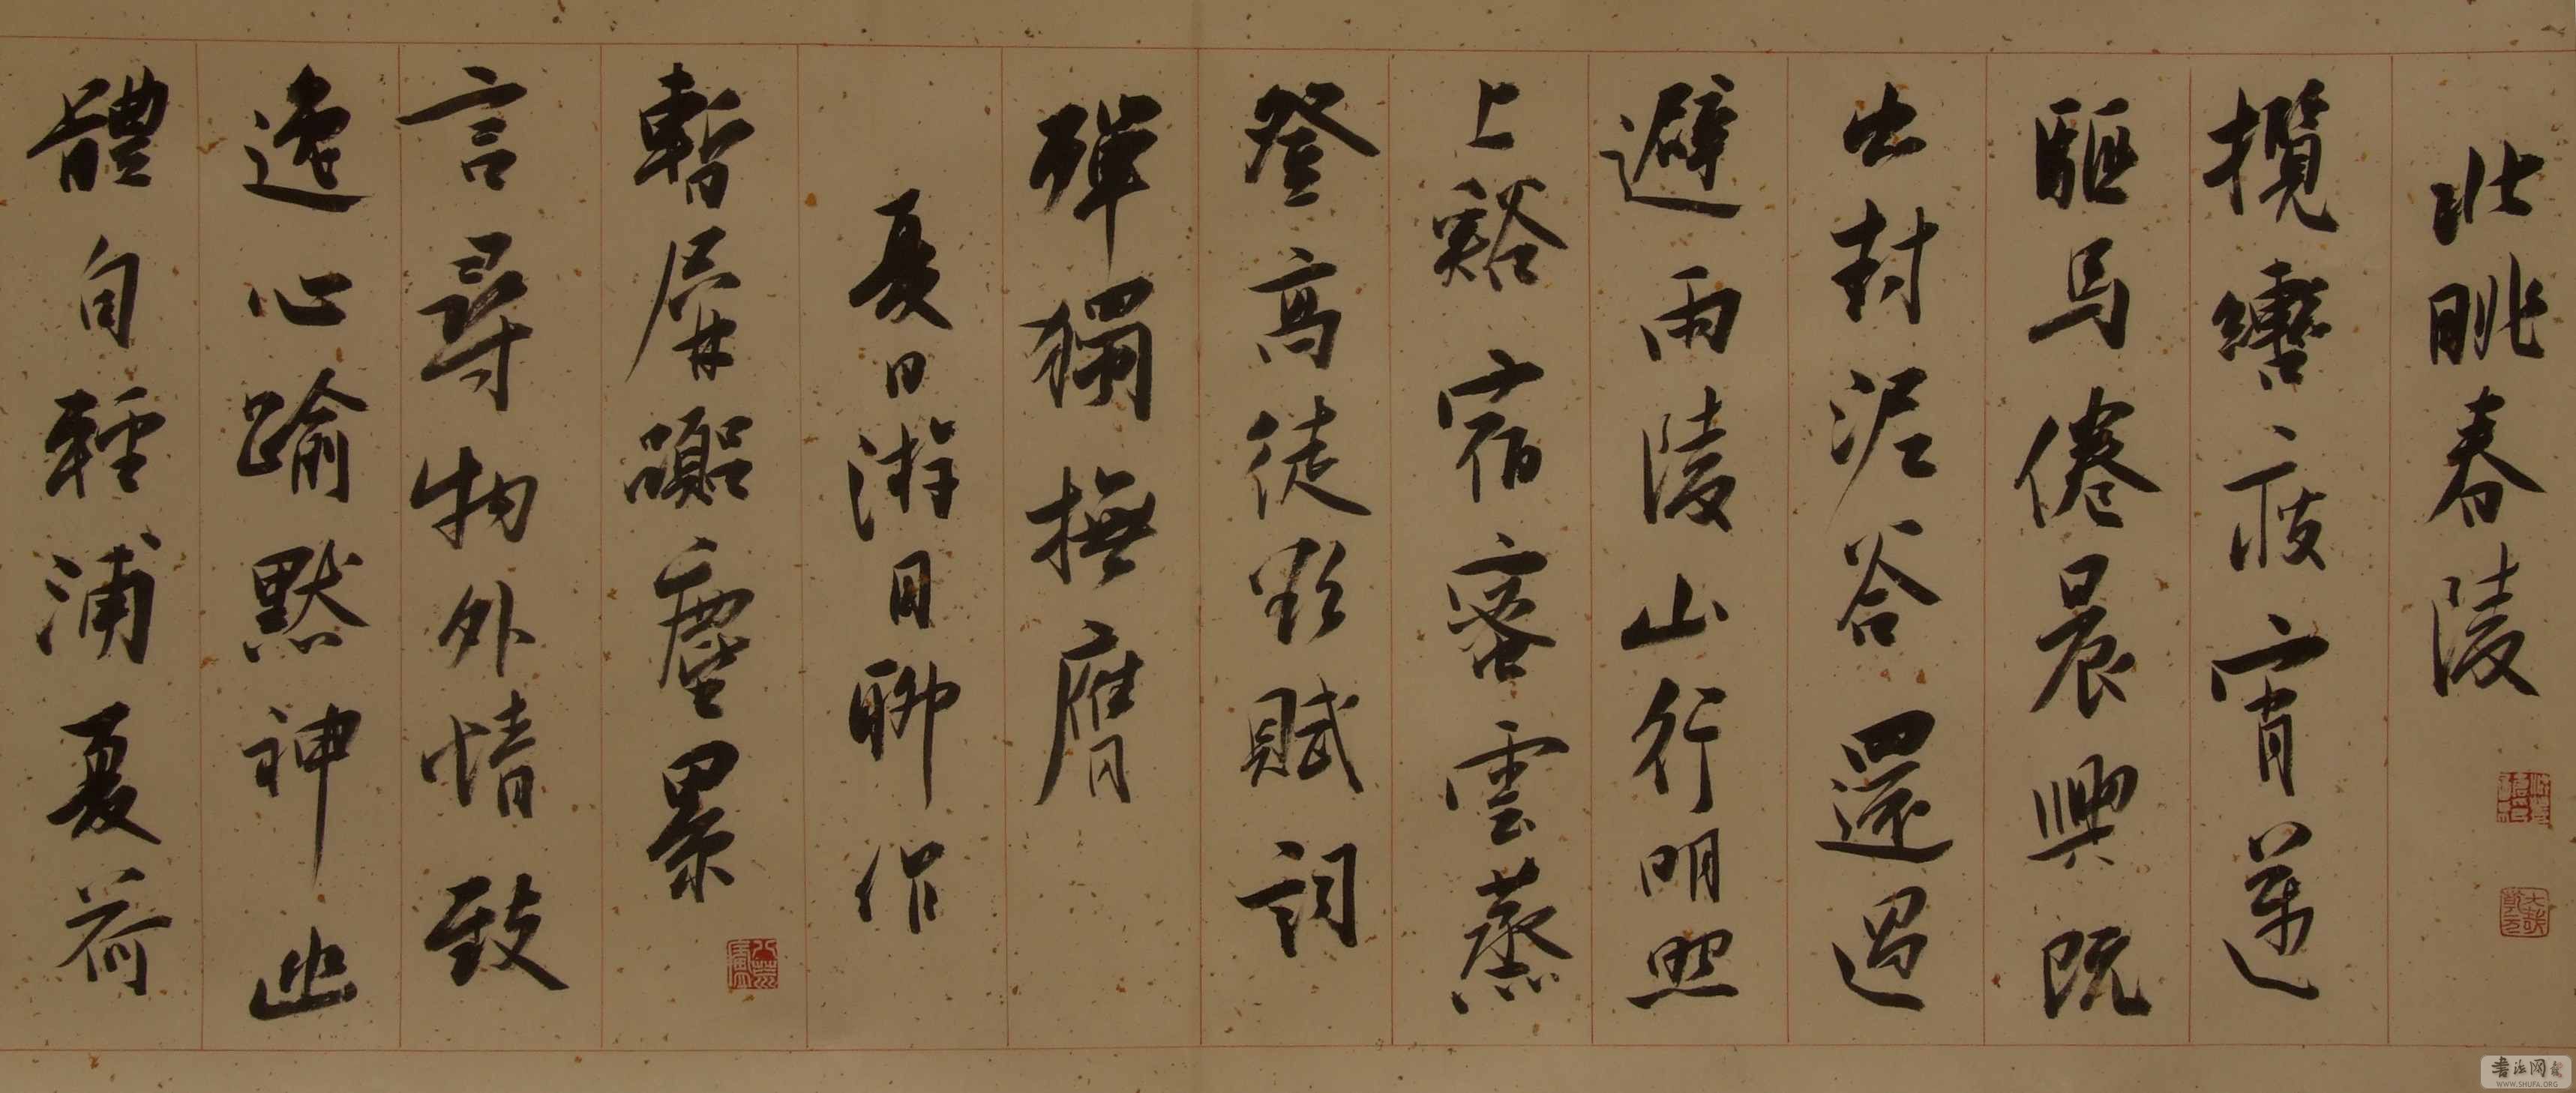 北眺春陵
攬轡疲宵邁
驅馬倦晨興既
出封泥谷還過
避雨陵山行明照
上谿宿密雲蒸
登高徒欲賦詞
殫獨撫膺
夏日游目聊作
暫屏囂塵累
言尋物外情致
逸心踰默神幽
體自輕浦夏荷
書法网
WWW.SHUFA.ORG